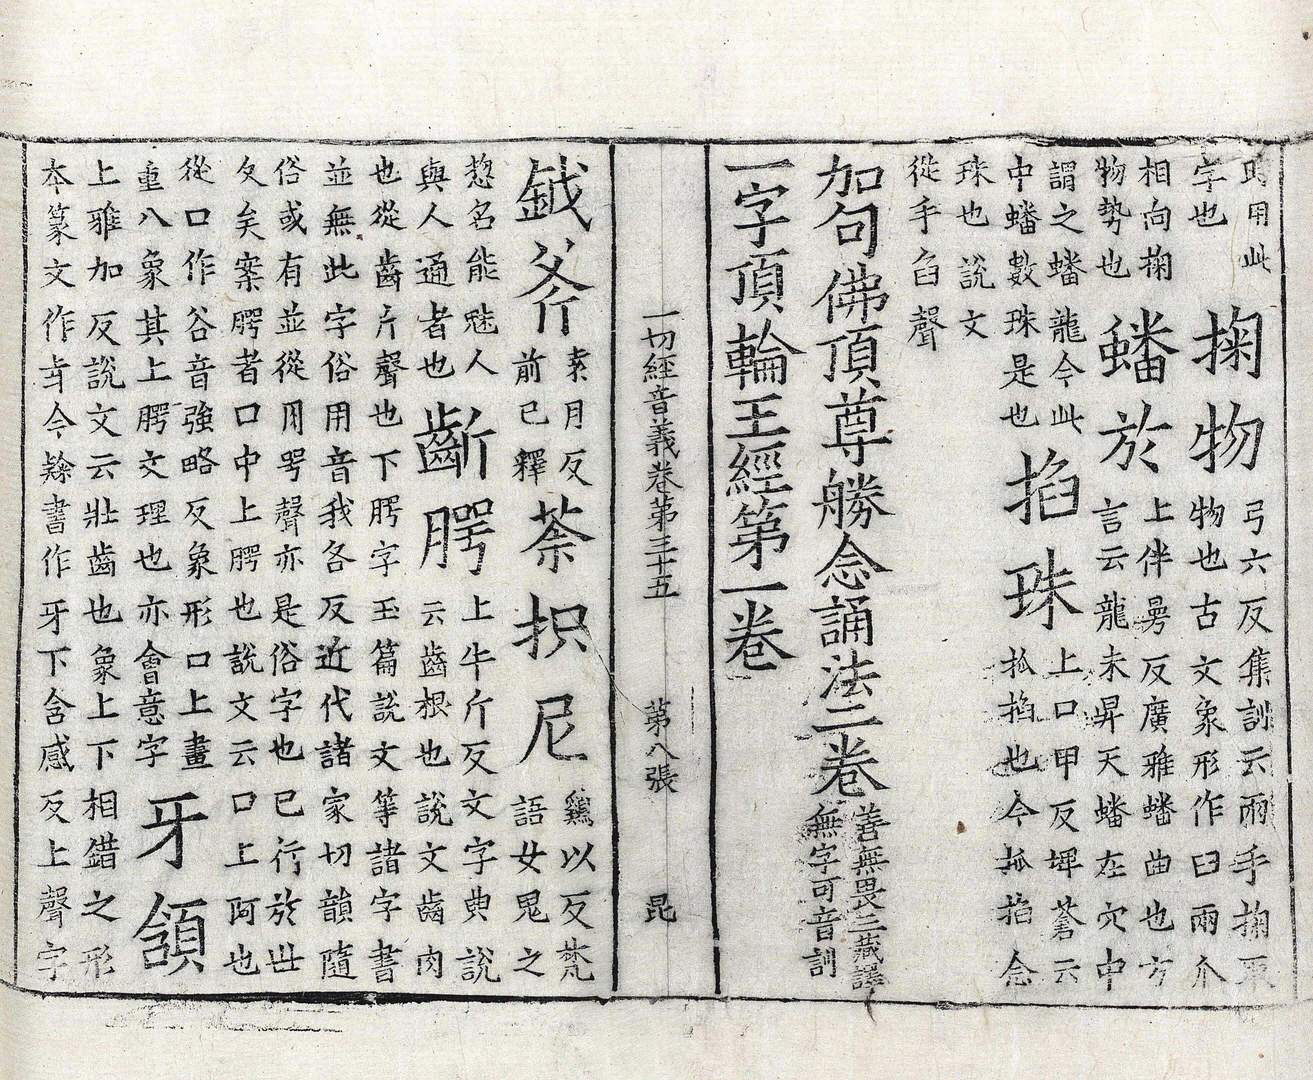 用此字也掬物弓六反集訓云兩手掬取物也古文象形作臼兩爪
相向掬物勢也蟠於上伴曼反廣雅蟠曲也方言云龍未昇天蟠在穴中
謂之蟠龍今此中蟠數珠是也掐珠上口甲反埤蒼云抓掐也今抓掐念
珠也說文從手臽聲
加句佛頂尊勝念誦法二卷善無畏三藏譯無字可音訓
一字頂輪王經第一卷
一切經音義卷第三十五 第八張 昆
鉞斧袁月反前已釋荼枳尼雞以反梵語女鬼之
惣名能魅人與人通者也齗腭上牛斤反文字典說云齒根也說文齒肉
也從齒斤聲也下腭字玉篇說文等諸字書
並無此字俗用音我各反近代諸家切韻隨
俗或有並從月咢聲亦是俗字也已行於世
久矣案腭者口中上腭也說文云口上阿也
從口作谷音強略反象形口上畫重八象其上腭文理也亦會意字牙頷
上雅加反說文云壯齒也象上下相錯之形
本篆文作今隸書作牙下含感反上聲字